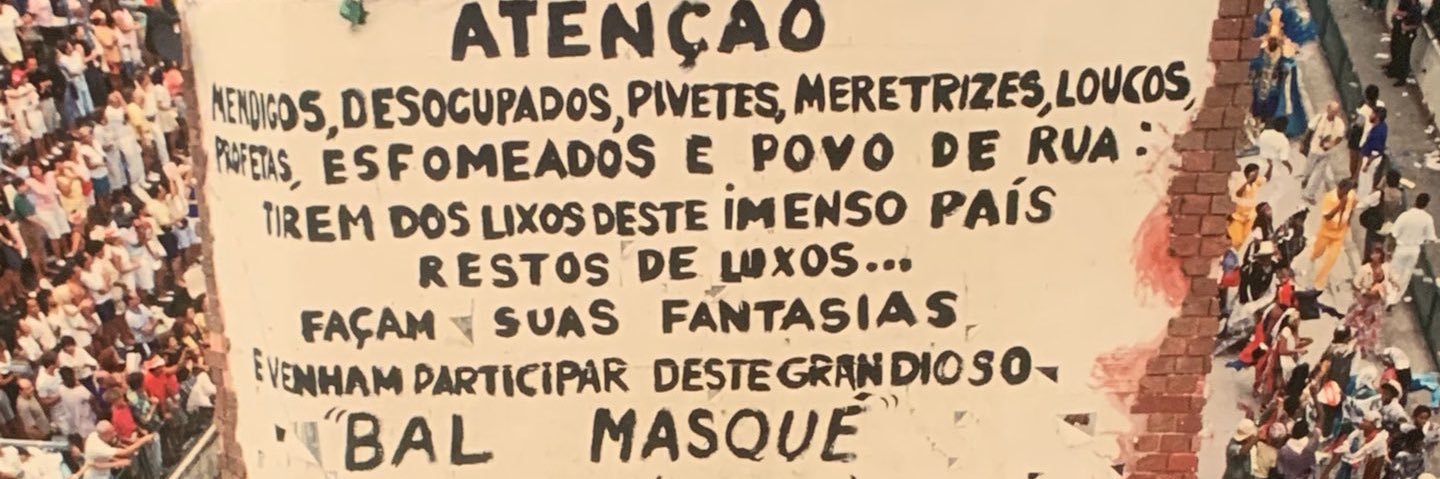 ATENÇÃO
MENDIGOS, DESOCUPADOS, PIVETES, MERETRIZES, LOUCOS,
PROFETAS, ESFOMEADOS E POVO DE RUA:
TIREM DOS LIXOS DESTE IMENSO PAÍS
RESTOS DE LUXOS...
FAÇAM SUAS FANTASIAS
E VENHAM PARTICIPAR DESTE GRANDIOSO
"BAL MASQUÉ"